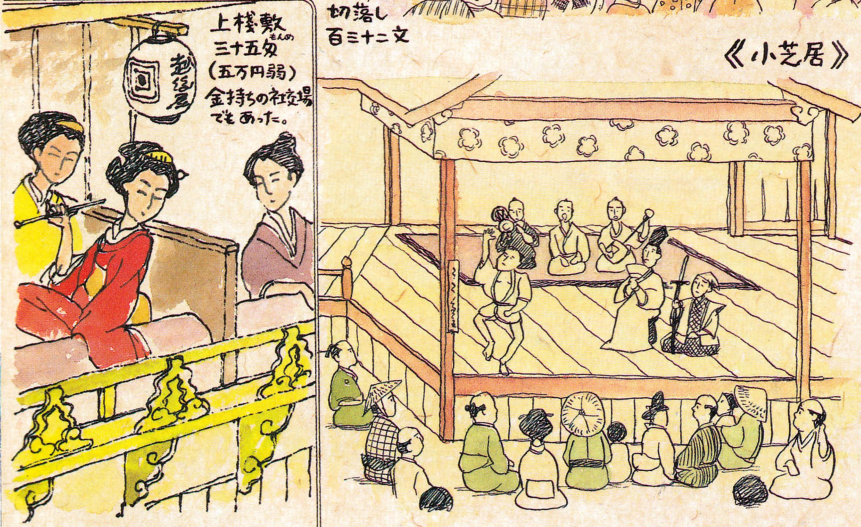 上棧敷
三十五匁
もんめ
(五万円弱)
金持ちの社交場
でもあった。
越後屋
切落し
百三十二文
《小芝居》